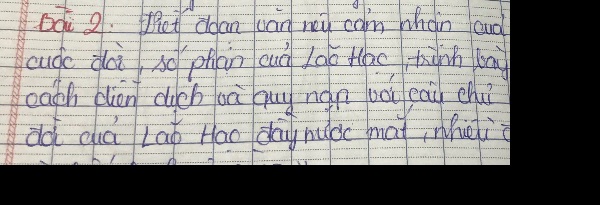 Bài 2. Viết đoạn văn nêu cảm nhận của
cuộc đời, số phận của Lão Hạc, trình bày
cách diễn dịch và quy nạp với câu chủ
đời của Lão Hạc đầy nước mắt, nhiều